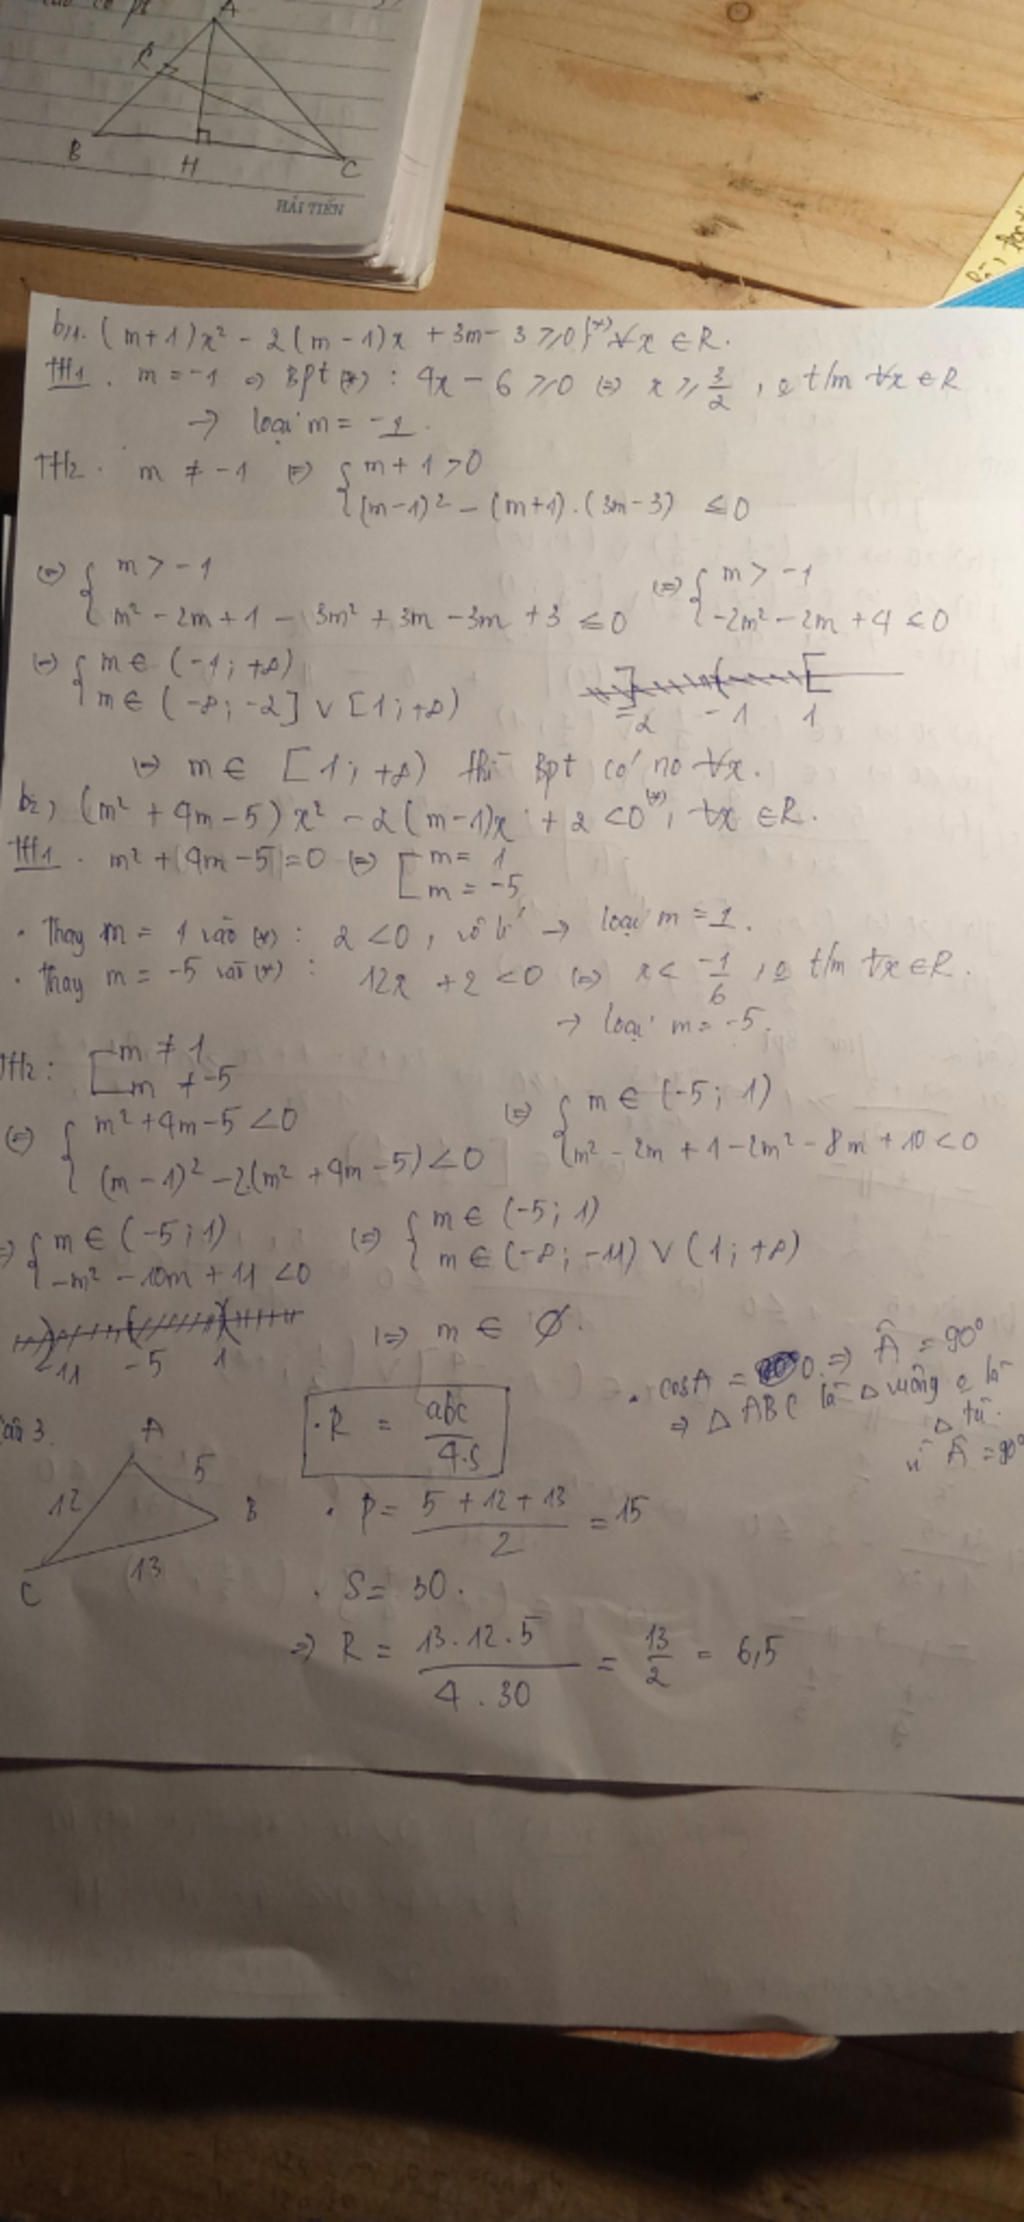 A
B
H
C
HẢI TIẾN
b1. (m+1)x² - 2(m-1)x + 3m-3 ≥ 0 (*) ∀x ∈ R.
TH1. m = -1 ⇒ Bpt (*) : 4x - 6 ≥ 0 ⇔ x ≥ 3/2 , o t/m ∀x ∈ R
→ loại m = -1.
TH2. m ≠ -1 ⇔ { m+1 > 0
(m-1)² - (m+1).(3m-3) ≤ 0
⇔ { m > -1 ⇔ { m > -1
m² - 2m + 1 - 3m² + 3m - 3m + 3 ≤ 0 -2m² - 2m + 4 ≤ 0
⇔ { m ∈ (-1; +∞)
m ∈ (-∞; -2] ∨ [1; +∞)
-2 -1 1
⇔ m ∈ [1; +∞) thì Bpt có no ∀x.
b2, (m² + 4m - 5)x² - 2(m-1)x + 2 < 0 (*), ∀x ∈ R.
TH1. m² + 4m - 5 = 0 ⇔ [ m = 1
m = -5
• Thay m = 1 vào (*) : 2 < 0, vô lí → loại m = 1.
• Thay m = -5 vào (*) : 12x + 2 < 0 ⇔ x < -1/6 , o t/m ∀x ∈ R.
→ loại m = -5.
TH2: [ m ≠ 1
m ≠ -5
⇔ { m² + 4m - 5 < 0 ⇔ { m ∈ (-5; 1)
(m-1)² - 2(m² + 4m - 5) < 0 m² - 2m + 1 - 2m² - 8m + 10 < 0
⇔ { m ∈ (-5; 1) ⇔ { m ∈ (-5; 1)
-m² - 10m + 11 < 0 m ∈ (-∞; -11) ∨ (1; +∞)
-11 -5 1
⇔ m ∈ ∅.
• cosA = 0 ⇒ Â = 90°
⇒ Δ ABC là Δ vuông o là
Δ tù.
vì Â = 90°
Câu 3.
A
12
5
B
13
C
• R = abc/4.S
• P = (5 + 12 + 13)/2 = 15
• S = 30.
⇒ R = (13.12.5)/(4.30) = 13/2 = 6,5